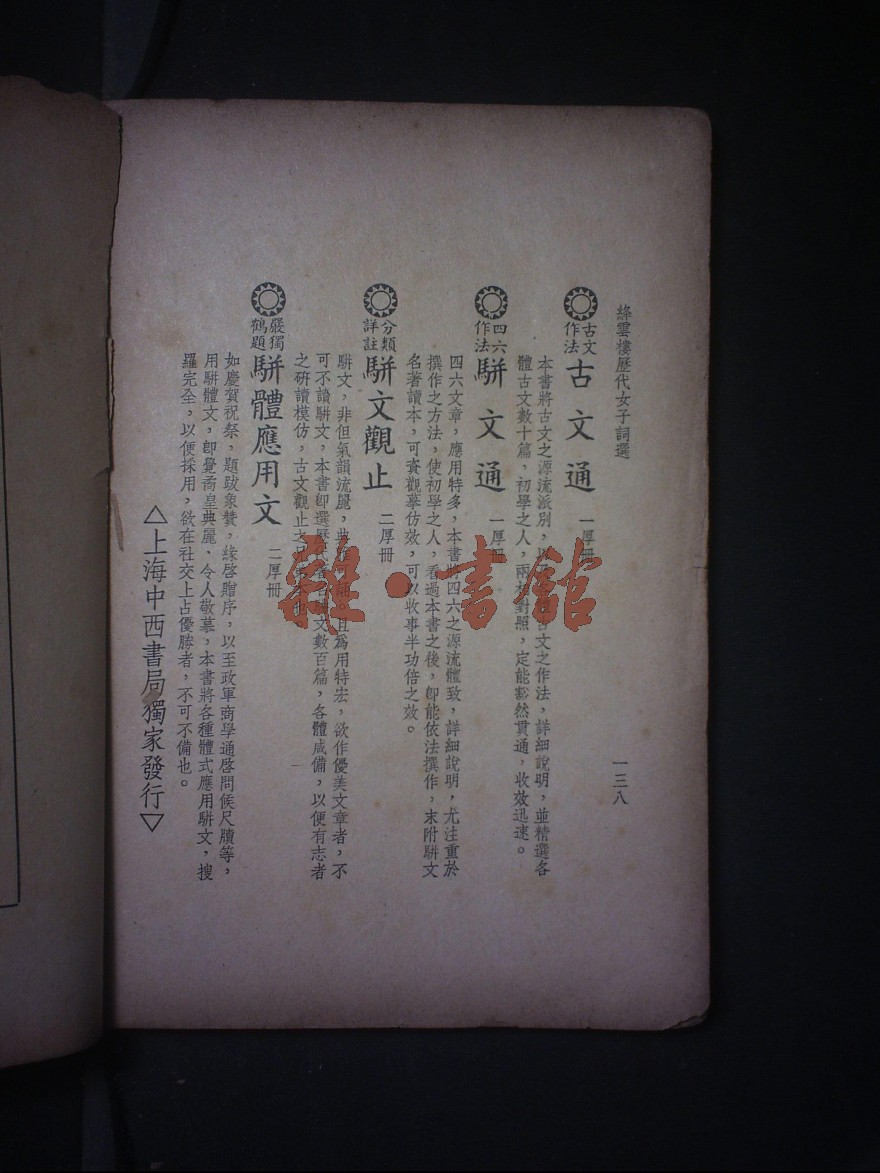 絳雲樓歷代女子詞選
一三八
古文
作法
古文通
一厚冊
本書將古文之源流派別，古文之作法，詳細說明，並精選各
體古文數十篇，初學之人，兩相對照，定能豁然貫通，收效迅速。
四六
作法
駢文通
一厚冊
四六文章，應用特多，本書將四六之源流體致，詳細說明，尤注重於
撰作之方法，使初學之人，看過本書之後，卽能依法撰作，末附駢文
名著讀本，可資觀摹仿效，可以收事半功倍之效。
分類
詳註
駢文觀止
二厚冊
駢文，非但氣韻流麗，且為用特宏，欲作優美文章者，不
可不讀駢文，本書卽選歷代文數百篇，各體咸備，以便有志者
之研讀模仿，古文觀止之
嚴獨
鶴題
駢體應用文
二厚冊
如慶賀祝祭，題跋象贊，緣啓贈序，以至政軍商學通啓問候尺牘等，
用駢體文，卽覺喬皇典麗，令人敬慕，本書將各種體式應用駢文，搜
羅完全，以便採用，欲在社交上占優勝者，不可不備也。
△上海中西書局獨家發行▽
雜·書館